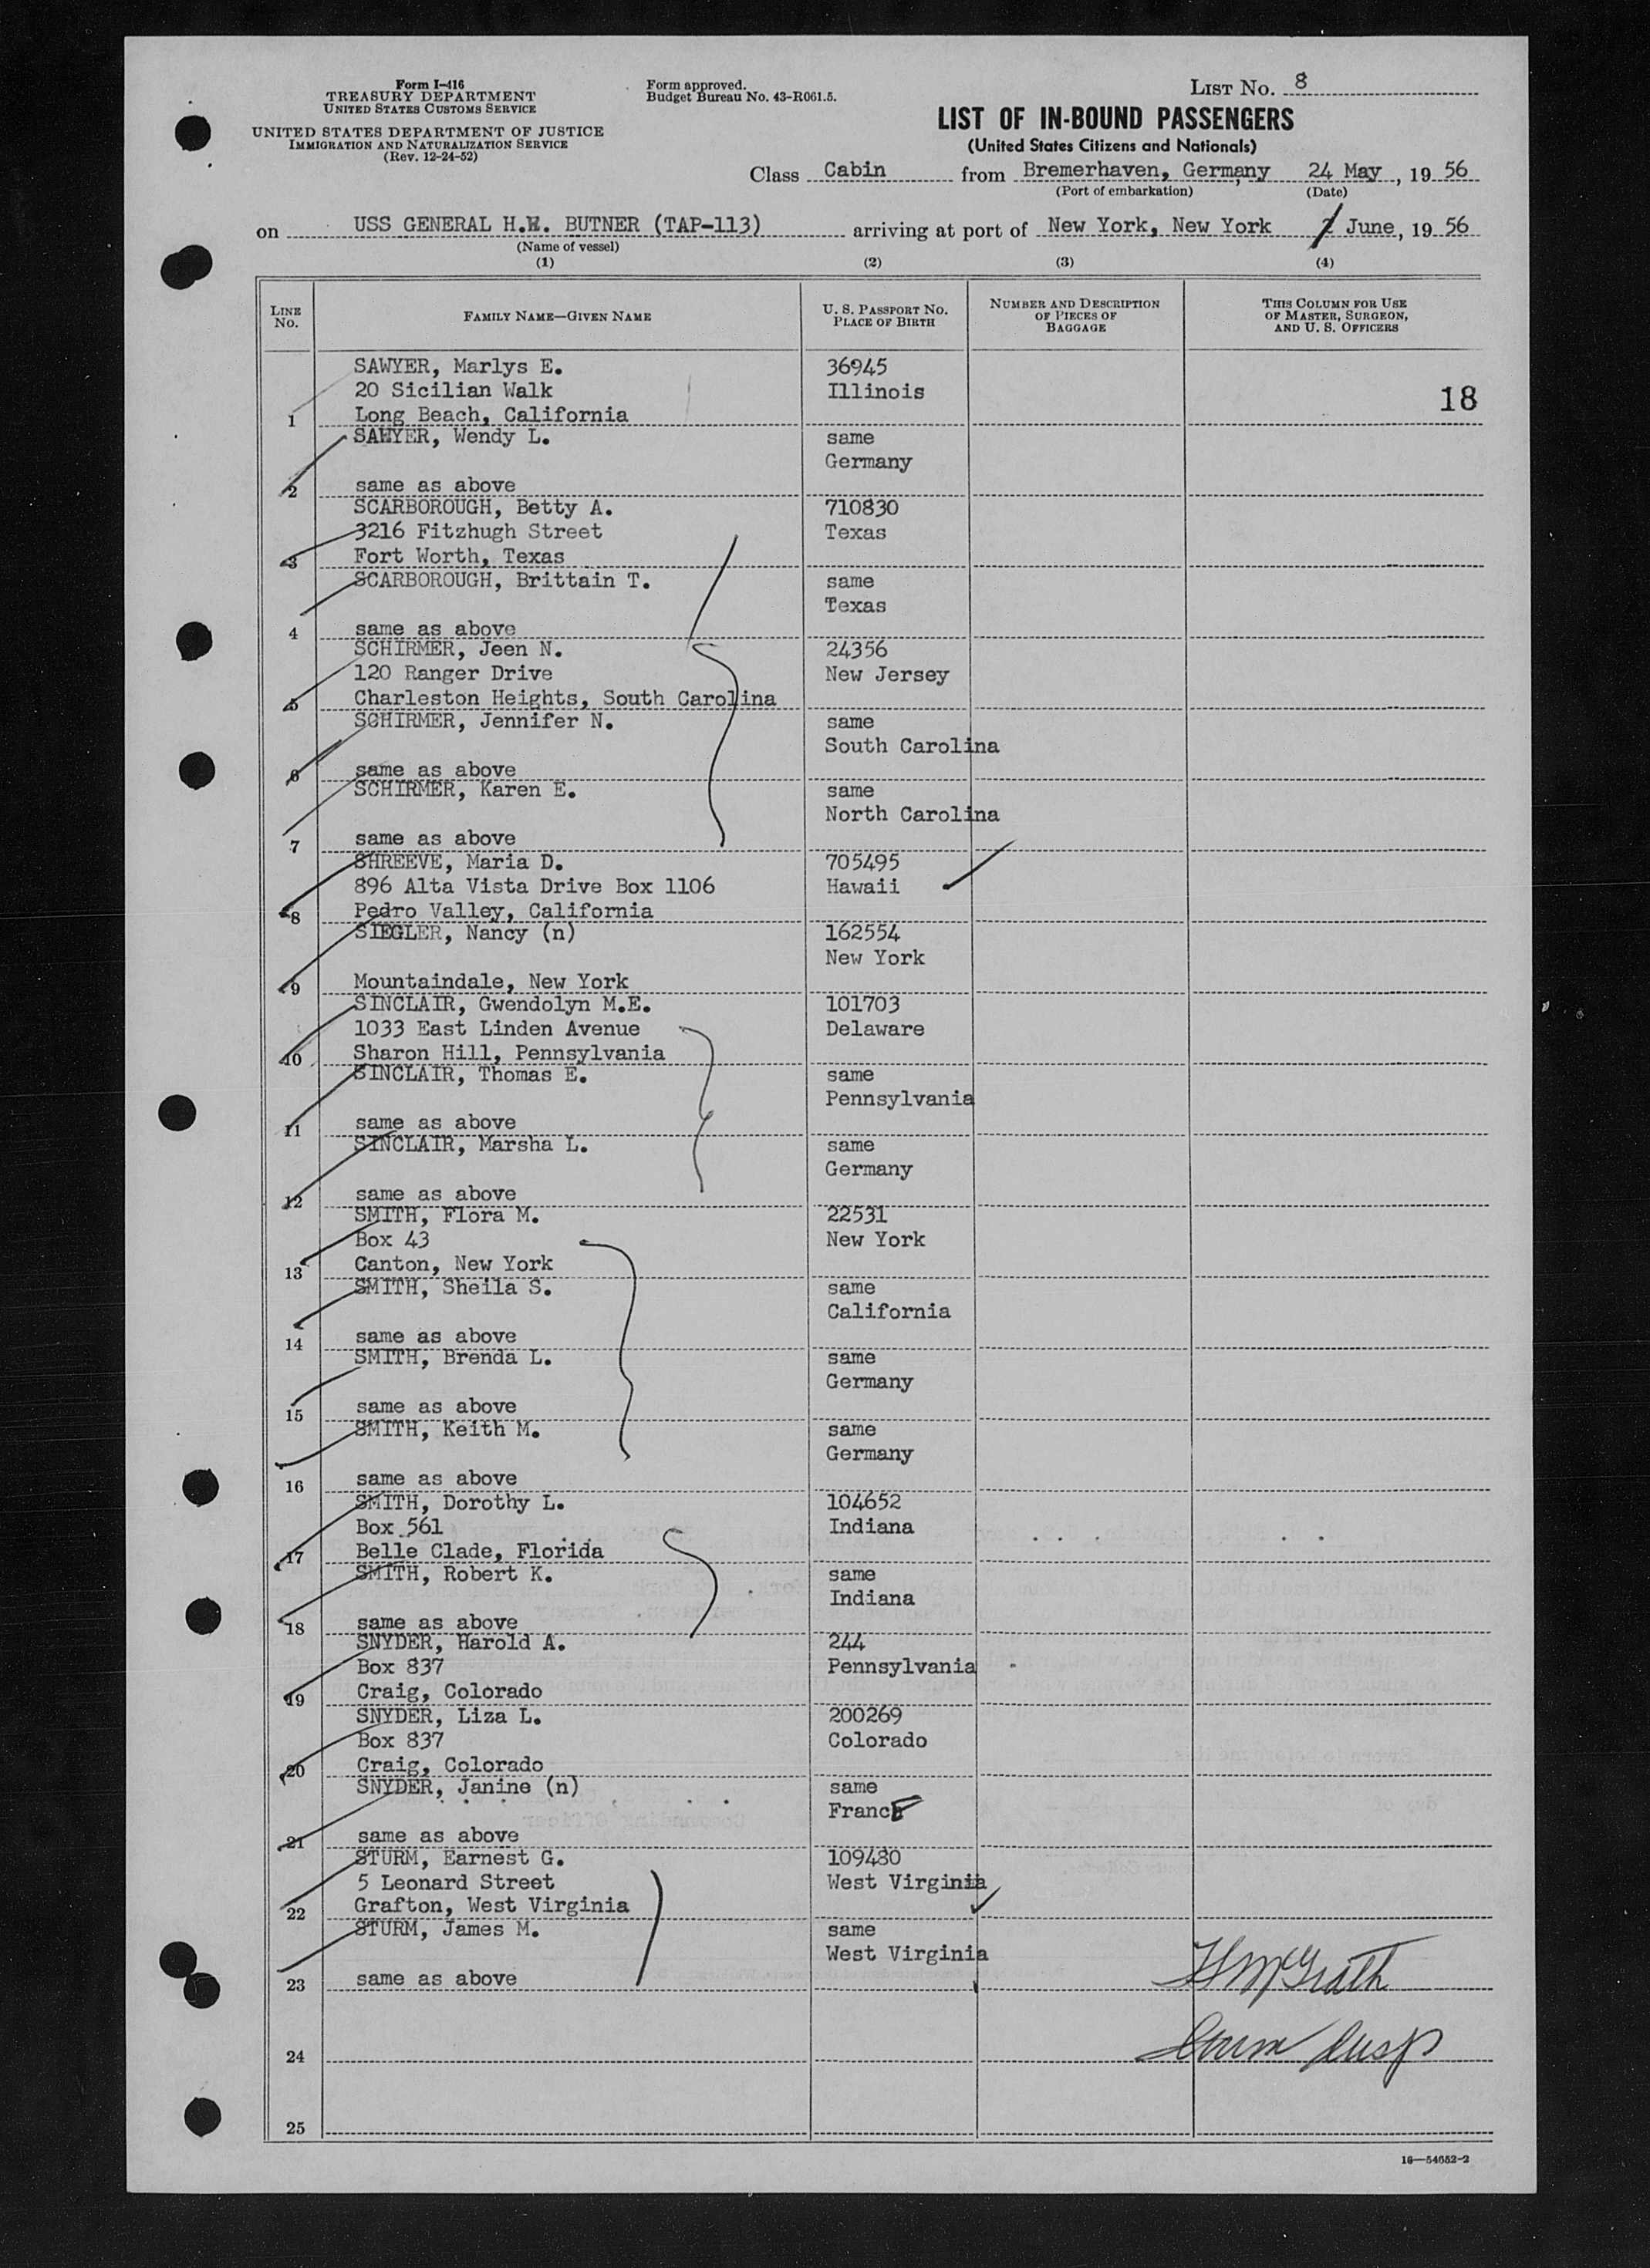 Form I-416
TREASURY DEPARTMENT
UNITED STATES CUSTOMS SERVICE
UNITED STATES DEPARTMENT OF JUSTICE
IMMIGRATION AND NATURALIZATION SERVICE
(Rev. 12-24-52)
Form approved.
Budget Bureau No. 43-R061.5.
LIST NO. 8
LIST OF IN-BOUND PASSENGERS
(United States Citizens and Nationals)
Class Cabin from Bremerhaven, Germany 24 May, 19 56
(Port of embarkation) (Date)
on USS GENERAL H.W. BUTNER (TAP-113) arriving at port of New York, New York June, 19 56
(Name of vessel)
(1) (2) (3) (4)
LINE NO. FAMILY NAME—GIVEN NAME U. S. PASSPORT NO. PLACE OF BIRTH NUMBER AND DESCRIPTION OF PIECES OF BAGGAGE THIS COLUMN FOR USE OF MASTER, SURGEON, AND U. S. OFFICERS
SAWYER, Marlys E. 36945
20 Sicilian Walk Illinois 18
1 Long Beach, California
SAWYER, Wendy L. same
Germany
2 same as above
SCARBOROUGH, Betty A. 710830
3216 Fitzhugh Street Texas
3 Fort Worth, Texas
SCARBOROUGH, Brittain T. same
Texas
4 same as above
SCHIRMER, Jeen N. 24356
120 Ranger Drive New Jersey
5 Charleston Heights, South Carolina
SCHIRMER, Jennifer N. same
South Carolina
6 same as above
SCHIRMER, Karen E. same
North Carolina
7 same as above
SHREEVE, Maria D. 705495
896 Alta Vista Drive Box 1106 Hawaii
8 Pedro Valley, California
SIEGLER, Nancy (n) 162554
New York
9 Mountaindale, New York
SINCLAIR, Gwendolyn M.E. 101703
1033 East Linden Avenue Delaware
10 Sharon Hill, Pennsylvania
SINCLAIR, Thomas E. same
Pennsylvania
11 same as above
SINCLAIR, Marsha L. same
Germany
12 same as above
SMITH, Flora M. 22531
Box 43 New York
13 Canton, New York
SMITH, Sheila S. same
California
14 same as above
SMITH, Brenda L. same
Germany
15 same as above
SMITH, Keith M. same
Germany
16 same as above
SMITH, Dorothy L. 104652
Box 561 Indiana
17 Belle Clade, Florida
SMITH, Robert K. same
Indiana
18 same as above
SNYDER, Harold A. 244
Box 837 Pennsylvania
19 Craig, Colorado
SNYDER, Liza L. 200269
Box 837 Colorado
20 Craig, Colorado
SNYDER, Janine (n) same
France
21 same as above
STURM, Earnest G. 109480
5 Leonard Street West Virginia
22 Grafton, West Virginia
STURM, James M. same
West Virginia
23 same as above
H McGrath
24
25
16—54652-2